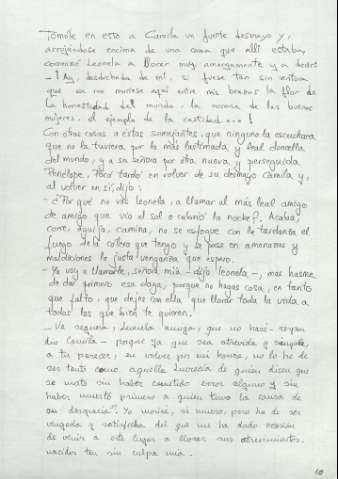 Tomóle en esto a Camila un fuerte desmayo y,
arrojándose encima de una cama que allí estaba,
comenzó Leonela a llorar muy amargamente y a decir:
- ¡Ay, desdichada de mí, si fuese tan sin ventura
que se me muriese aquí entre mis brazos la flor de
la honestidad del mundo, la corona de las buenas
mujeres, el ejemplo de la castidad...!
Con otras cosas a estas semejantes, que ninguno la escuchara
que no la tuviera por la más lastimada y leal doncella
del mundo, y a su señora por otra nueva y perseguida
Penélope. Poco tardó en volver de su desmayo Camila y,
al volver en sí, dijo:
- ¿Por qué no vas, Leonela, a llamar al más leal amigo
de amigo que vio el sol o cubrió la noche? Acaba,
corre, aguija, camina, no se esfogue con la tardanza el
fuego de la cólera que tengo y se pase en amenazas y
maldiciones la justa venganza que espero.
- Ya voy a llamarle, señora mía - dijo Leonela -, mas hasme
de dar primero esa daga, porque no hagas cosa, en tanto
que falto, que dejes con ella que llorar toda la vida a
todos los que bien te quieren.
- Ve segura, Leonela amiga, que no haré - respon
dió Camila - porque ya que sea atrevida y simple,
a tu parecer, en volver por mi honra, no lo he de
ser tanto como aquella Lucrecia de quien dicen que
se mató sin haber cometido error alguno y sin
haber muerto primero a quien tuvo la causa de
su desgracia. Yo moriré, si muero, pero he de ser
vengada y satisfecha del que me ha dado ocasión
de venir a este lugar a llorar sus atrevimientos,
nacidos tan sin culpa mía.
10